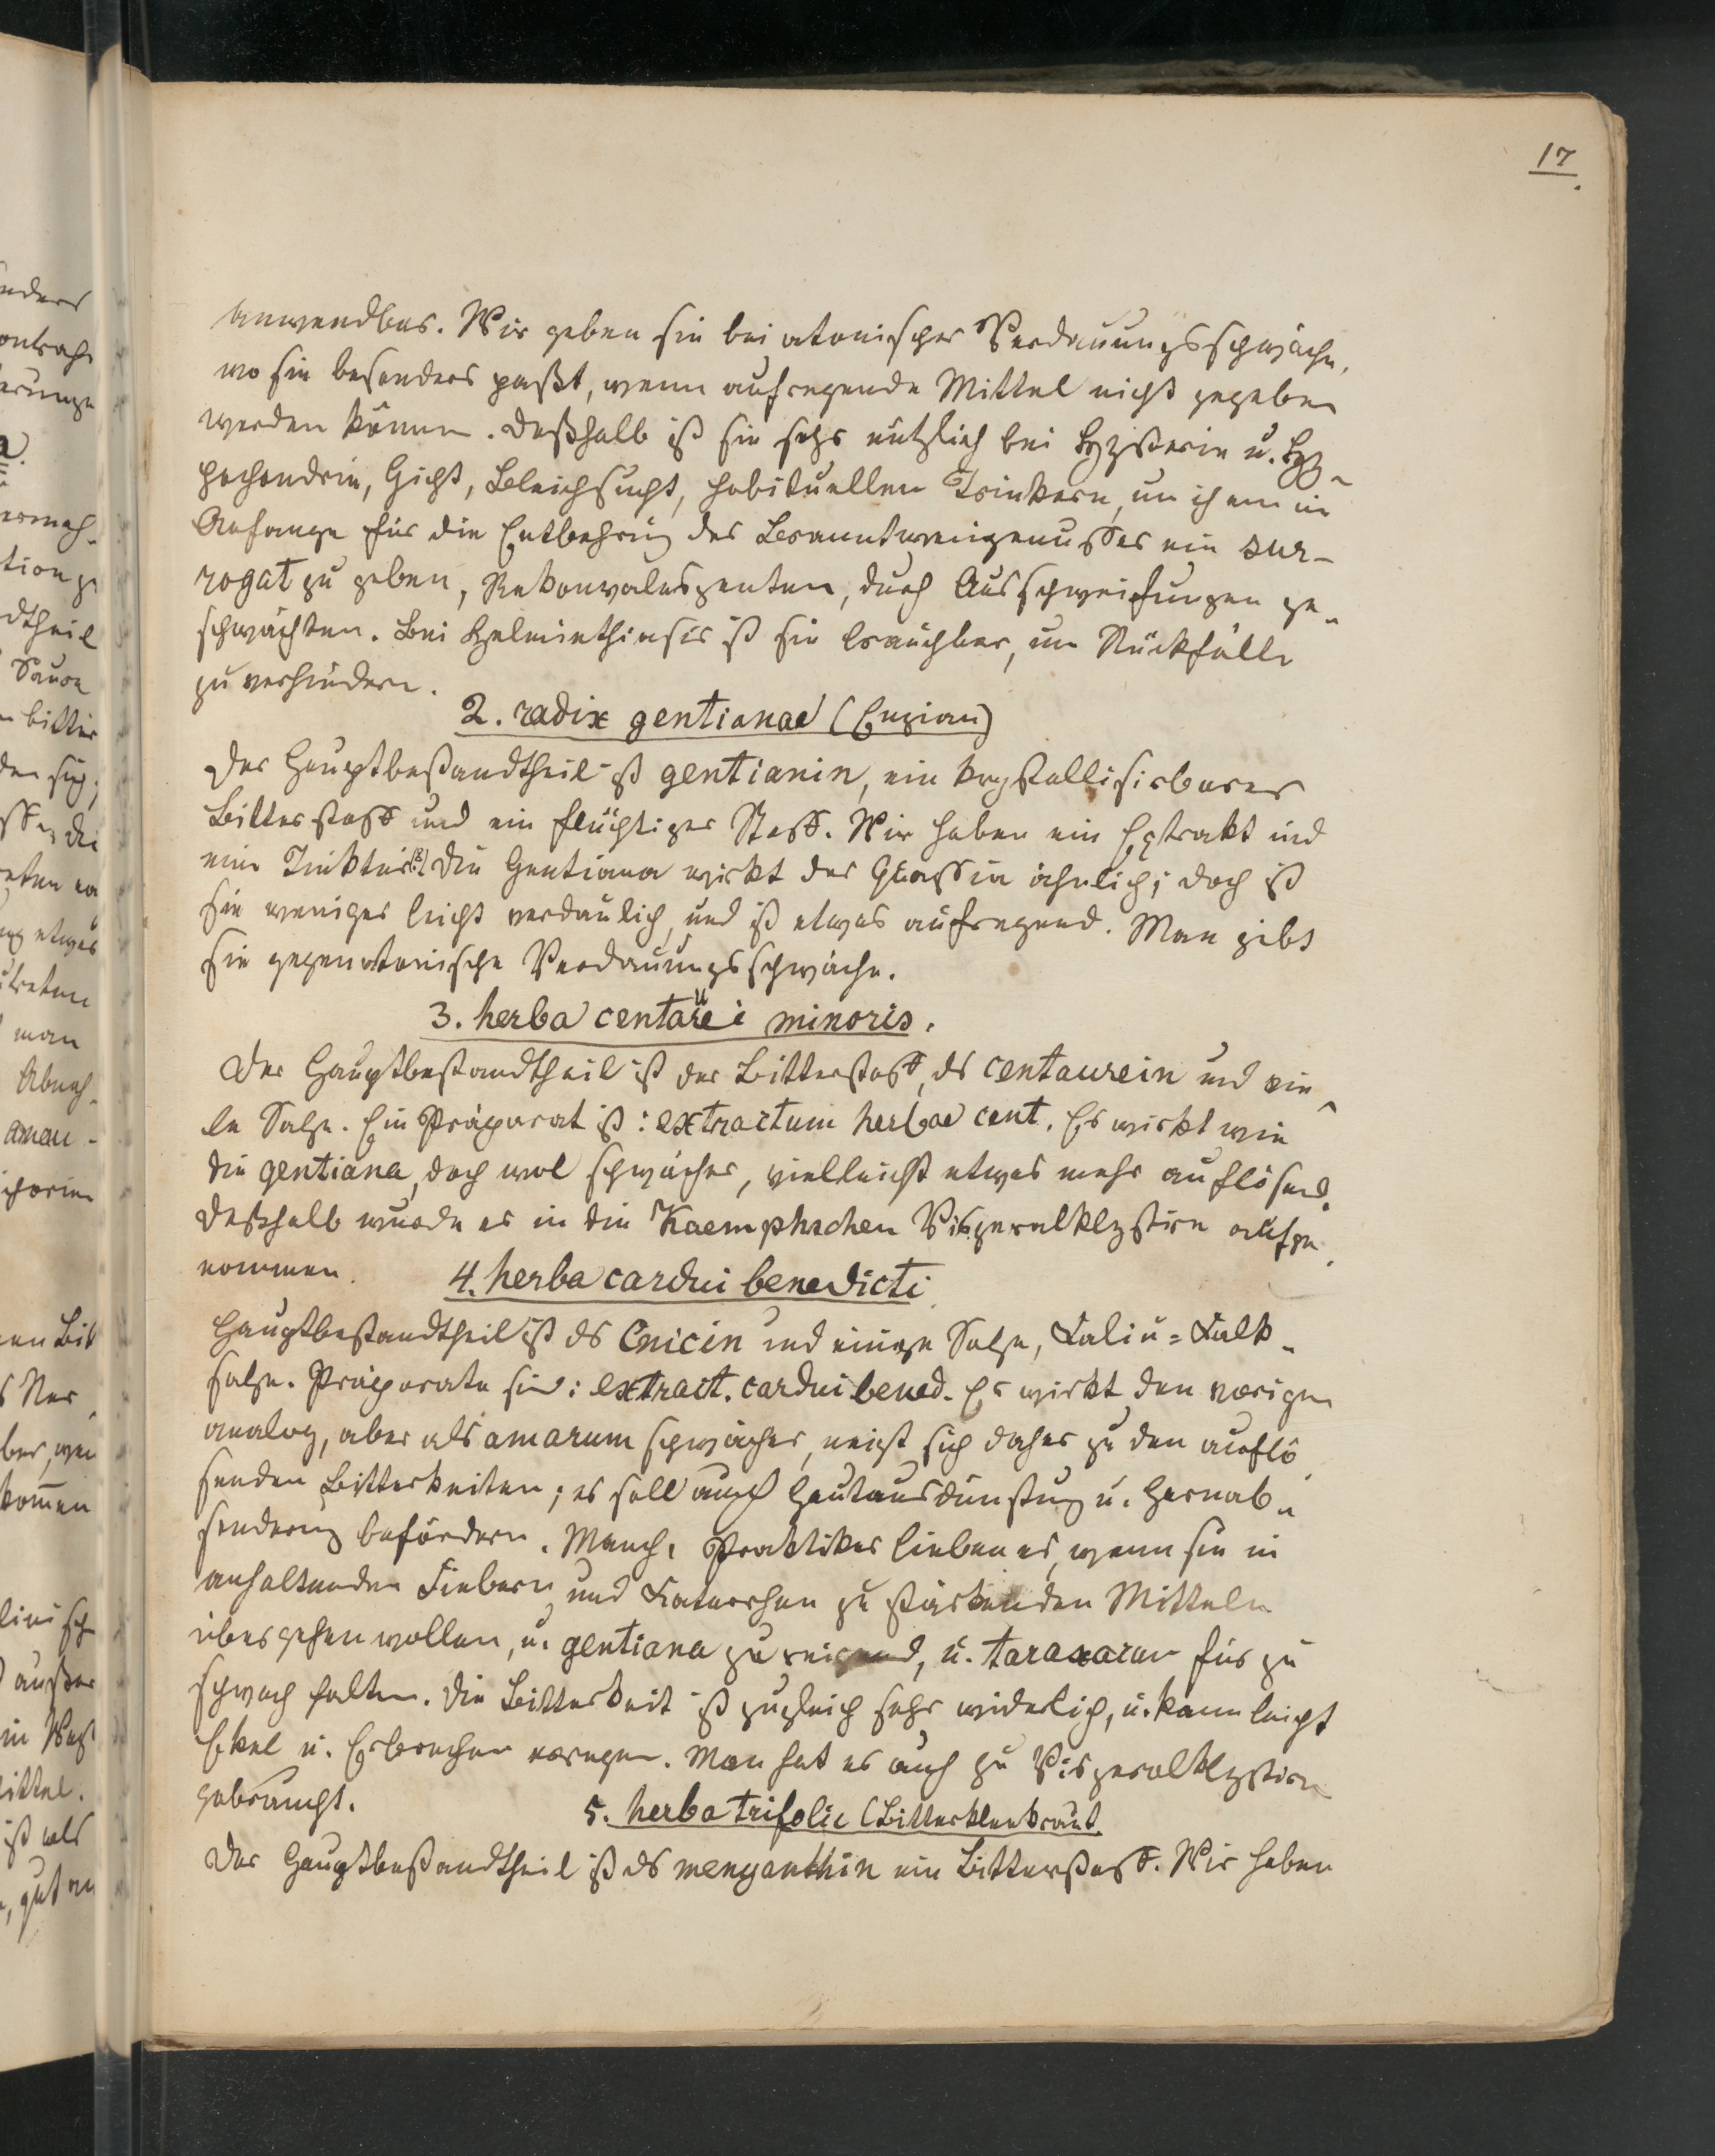 17
anwendbar. Wir geben sie bei atonischer Verdauungsschwäche,
wo sie besonders paßt, wenn aufregende Mittel nicht gegeben
werden können. Deßhalb ist sie sehr nützlich bei Hysterie u. Hy-
pochondrie, Gicht, Bleichsucht, habituellen Trinkern, um ihnen im
Anfange für die Entbehrung des Branntweingenusses ein sur-
rogat zu geben, Rekonvaleszenten, durch Ausschweifungen ge-
schwächten. Bei Helminthiasis ist sie brauchbar, um Rückfälle
zu verhindern.
2. radix gentianae (Enzian)
Der Hauptbestandtheil ist gentianin, ein krystallisirbarer
Bitterstoff und ein flüchtiger Stoff. Wir haben ein Extrakt und
eine Tinktur. Die Gentiana wirkt der Quassia ähnlich; doch ist
sie weniger leicht verdaulich, und ist etwas aufregend. Man gibt
sie gegen atonische Verdauungsschwäche.
3. herba centaurei minoris.
Der Hauptbestandtheil ist der Bitterstoff, ds centaurein und vie-
le Salze. Ein Präparat ist: extractum herbae cent. Es wirkt wie
die gentiana, doch wol schwächer, vielleicht etwas mehr auflösend.
Deßhalb wurde es in die Kaempfschen Viszeralklystire aufge-
nommen.
4. herba cardui benedicti
Hauptbestandtheil ist ds Cnicin und einige Salze, Kali u= Kalk-
salze. Präparate sind: extract. cardui bened. Es wirkt den vorigen
analog, aber als amarum schwächer, neigt sich daher zu den auflö-
senden Bitterkeiten; es soll auch Hautausdünstung u. Harnab-
sonderung befördern. Manche Praktiker lieben es, wenn sie in
anhaltenden Fiebern und Katarrhen zu stärkenden Mitteln
übergehen wollen, u. gentiana zu reizend, u. taraxacum für zu
schwach halten. Die Bitterkeit ist zugleich sehr widerlich, u. kann leicht
Ekel u. Erbrechen erregen. Man hat es auch zu Viszeralklystiren
gebraucht.
5. herba trifolii (Bitterkleekraut.
Der Hauptbestandtheil ist ds menyanthin ein Bitterstoff. Wir haben